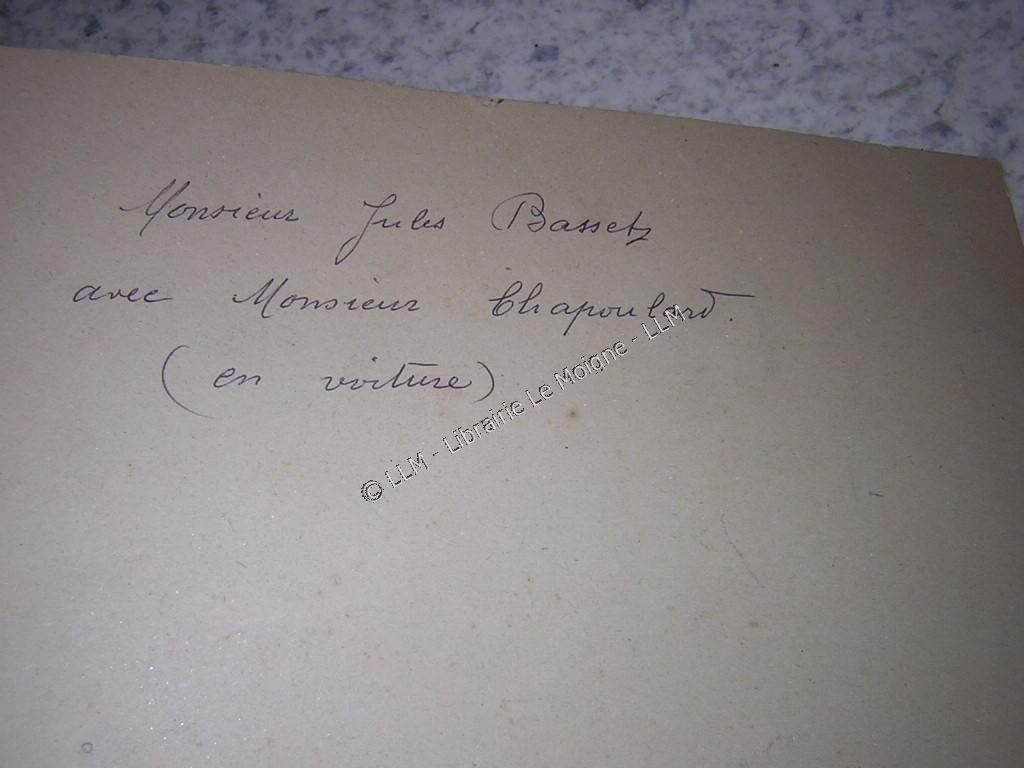 Monsieur Jules Bassetz
avec Monsieur Chapoulard.
(en voiture)
© LLM - Librairie Le Moigne - LLM